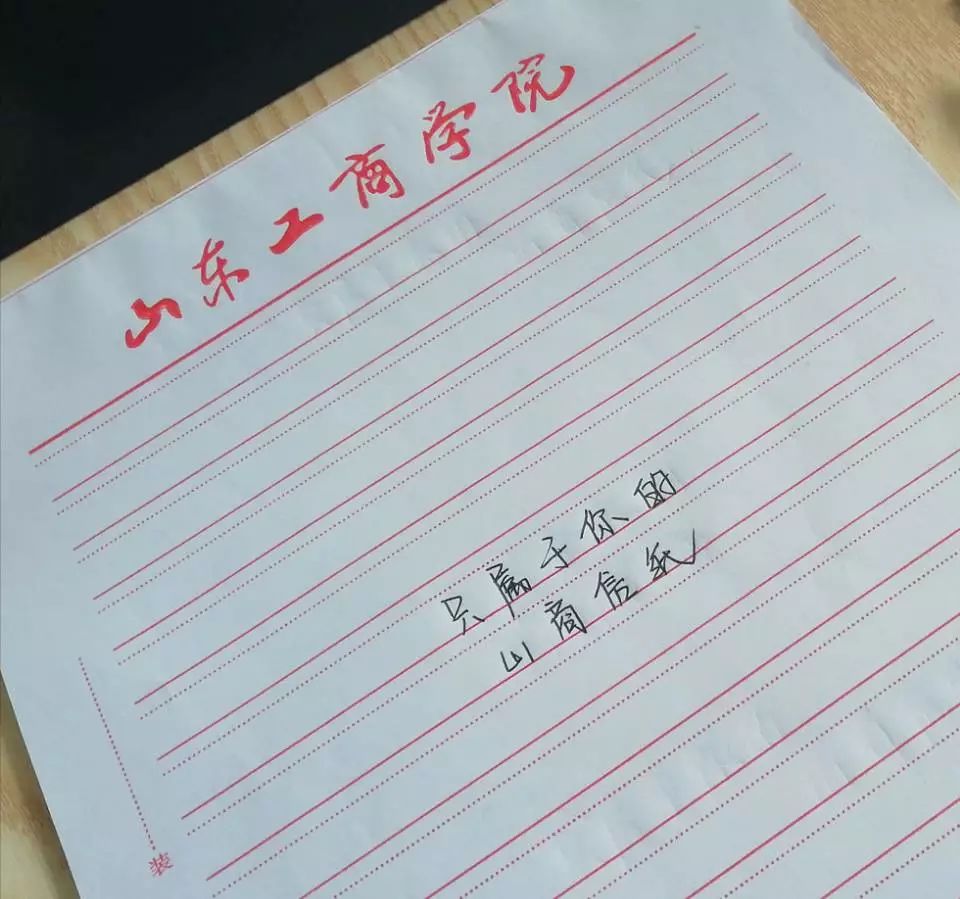 山东工商学院
只属于你的
山商信纸
装